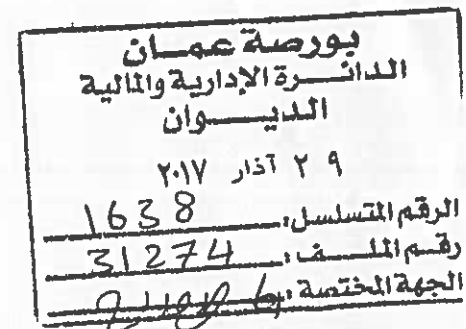 بورصة عمان
الدائرة الإدارية والمالية
الديوان
٢٩ آذار ٢٠١٧
الرقم المتسلسل: 1638
رقم الملف: 31274
الجهة المختصة: